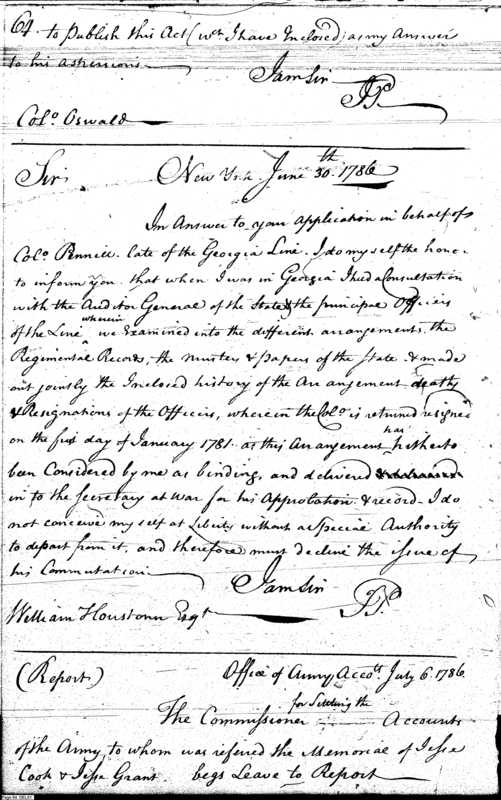 64. to publish this Act (wch I have Enclosed) as my Answer
to his aspersions
I am Sir
JP.
Colo. Oswald
Sir, New York June 30th 1786
In Answer to your application in behalf of
Colo. Pannill late of the Georgia Line. I do my self the honor
to inform you that when I was in Georgia I had a Consultation
with the Auditor General of the State & the principal Officers
of the Line wherein we Examined into the different arrangements the
Regimental Records, the musters & papers of the State & made
out jointly the Inclosed history of the Arrangement deaths
& Resignations of the Officers, wherein the Colo. is returned resigned
on the first day of January 1781. as this Arrangement has hitherto
been Considered by me as binding, and delivered
in to the Secretary at War for his Approbation & record. I do
not conceive my self at Liberty without a Special Authority
to depart from it, and therefore must decline the issue of
his Commutation
I am Sir
JP.
William Houstoun Esqr
(Report) Office of Army Accots. July 6. 1786.
The Commissioner for Settling the Accounts
of the Army to whom was referred the Memorial of Jesse
Cook & Jesse Grant begs Leave to Report